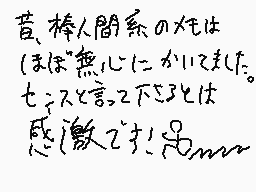 昔、棒人間系のメモは
ほぼ無心にかいてました。
センスと言って下さるとは
感激です!